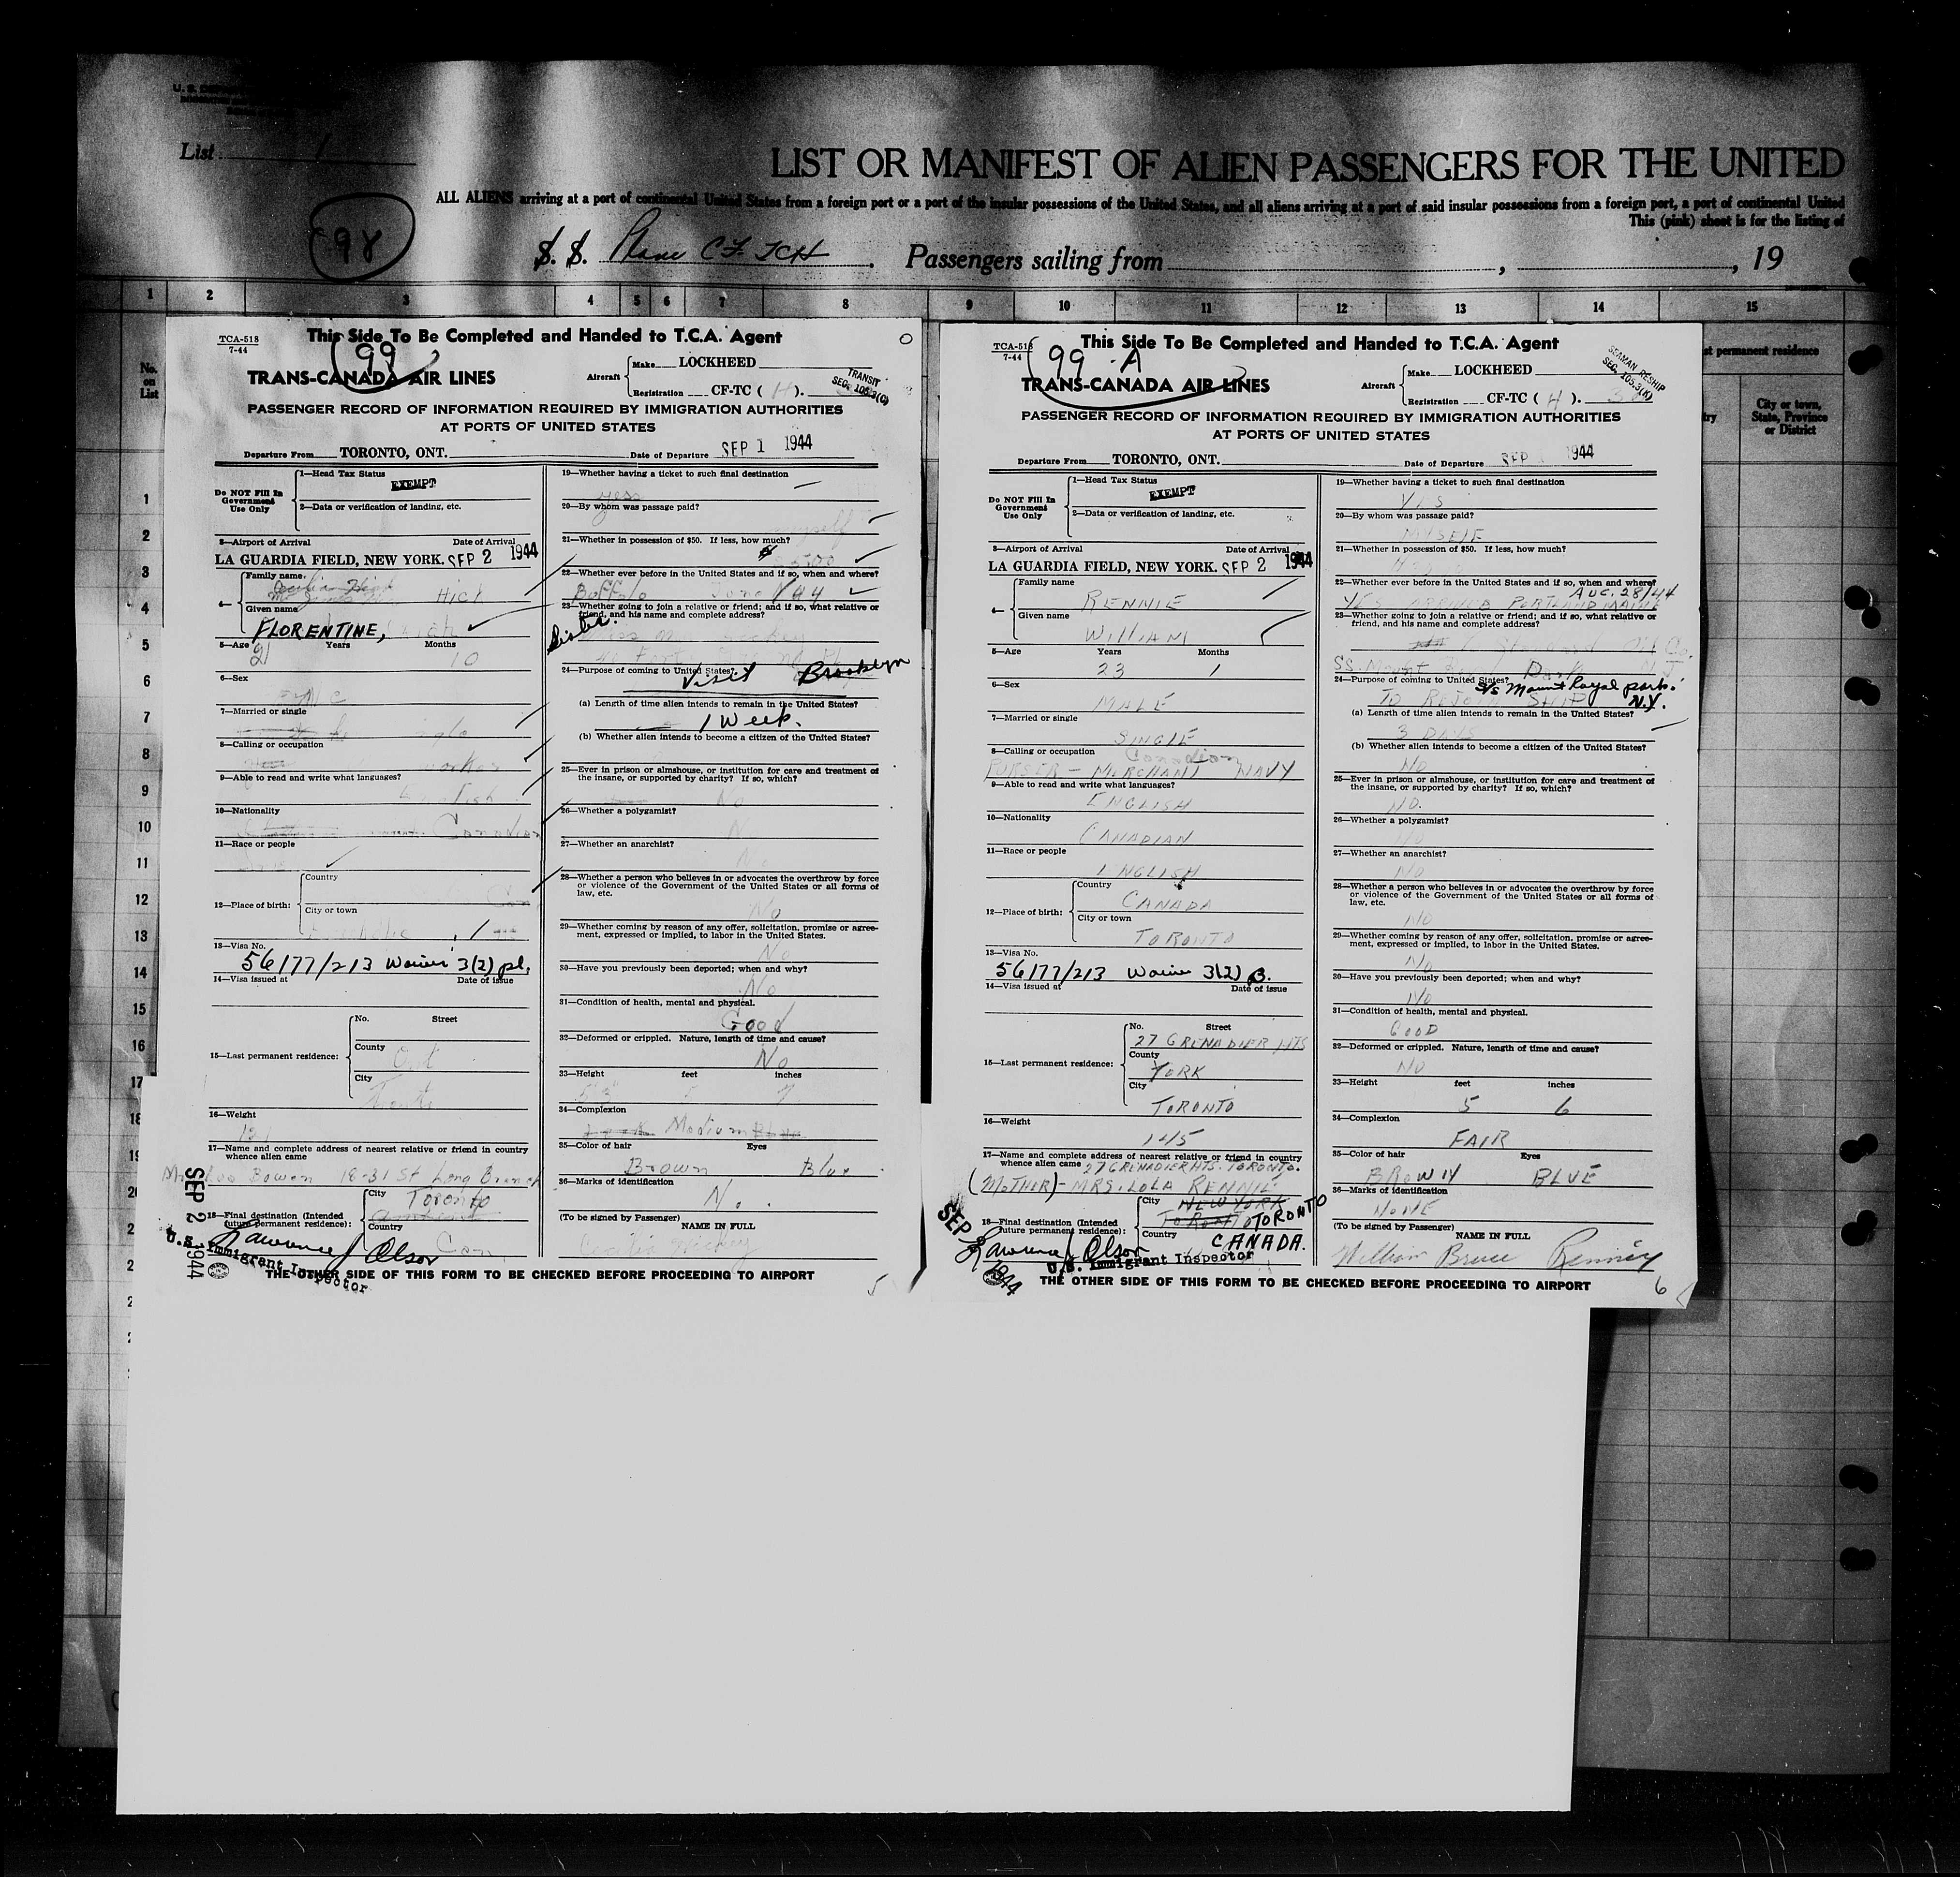 List 1
LIST OR MANIFEST OF ALIEN PASSENGERS FOR THE UNITED
ALL ALIENS arriving at a port of continental United States from a foreign port or a port of the insular possessions of the United States, and all aliens arriving at a port of said insular possessions from a foreign port, a port of continental United
This (pink) sheet is for the listing of
98
S. S. Plane CF TCH. Passengers sailing from , , 19
1 2 3 4 5 6 7 8 9 10 11 12 13 14 15
No. on List
st permanent residence
City or town, State, Province or District
1
2
3
4
5
6
7
8
9
10
11
12
13
14
15
16
17
18
19
TCA-518
7-44
This Side To Be Completed and Handed to T.C.A. Agent
99
TRANS-CANADA AIR LINES
Aircraft
Make LOCKHEED
Registration CF-TC ( H ).
TRANSIT
SEC. 105.3(C)
PASSENGER RECORD OF INFORMATION REQUIRED BY IMMIGRATION AUTHORITIES
AT PORTS OF UNITED STATES
Departure From TORONTO, ONT. Date of Departure SEP 1 1944
Do NOT Fill In Government Use Only
1—Head Tax Status
EXEMPT
2—Data or verification of landing, etc.
3—Airport of Arrival Date of Arrival
LA GUARDIA FIELD, NEW YORK. SEP 2 1944
4—
Family name
Given name
FLORENTINE,
5—Age Years Months
21 10
6—Sex
7—Married or single
8—Calling or occupation
9—Able to read and write what languages?
10—Nationality
Canadian
11—Race or people
12—Place of birth:
Country
City or town
13—Visa No.
56177/213 Waiver 3(2) pl.
14—Visa issued at Date of issue
15—Last permanent residence:
No. Street
County
Ont
City
Toronto
16—Weight
17—Name and complete address of nearest relative or friend in country whence alien came
Bowen 18-31 St Long Branch
18—Final destination (Intended future permanent residence):
City Toronto
Country
Can
Lawrence J Olson
U.S. Immigrant Inspector
SEP 2 1944
19—Whether having a ticket to such final destination
yes
20—By whom was passage paid?
myself
21—Whether in possession of $50. If less, how much?
22—Whether ever before in the United States and if so, when and where?
Buffalo June /44
23—Whether going to join a relative or friend; and if so, what relative or friend, and his name and complete address?
Sister.
Brooklyn
24—Purpose of coming to United States?
Visit
(a) Length of time alien intends to remain in the United States?
1 Week.
(b) Whether alien intends to become a citizen of the United States?
25—Ever in prison or almshouse, or institution for care and treatment of the insane, or supported by charity? If so, which?
No
26—Whether a polygamist?
27—Whether an anarchist?
No
28—Whether a person who believes in or advocates the overthrow by force or violence of the Government of the United States or all forms of law, etc.
No
29—Whether coming by reason of any offer, solicitation, promise or agreement, expressed or implied, to labor in the United States.
No
30—Have you previously been deported; when and why?
No
31—Condition of health, mental and physical.
Good
32—Deformed or crippled. Nature, length of time and cause?
No
33—Height feet inches
34—Complexion
Medium
35—Color of hair Eyes
Brown Blue
36—Marks of identification
No.
(To be signed by Passenger)
NAME IN FULL
Cecilia Hickey
THE OTHER SIDE OF THIS FORM TO BE CHECKED BEFORE PROCEEDING TO AIRPORT
5
TCA-518
7-44
This Side To Be Completed and Handed to T.C.A. Agent
99 - A
TRANS-CANADA AIR LINES
Aircraft
Make LOCKHEED
Registration CF-TC ( H ).
SEAMAN RESHIP
SEC. 105.3(K)
PASSENGER RECORD OF INFORMATION REQUIRED BY IMMIGRATION AUTHORITIES
AT PORTS OF UNITED STATES
Departure From TORONTO, ONT. Date of Departure SEP 1 1944
Do NOT Fill In Government Use Only
1—Head Tax Status
EXEMPT
2—Data or verification of landing, etc.
3—Airport of Arrival Date of Arrival
LA GUARDIA FIELD, NEW YORK. SEP 2 1944
4—
Family name
RENNIE
Given name
WILLIAM
5—Age Years Months
23 1
6—Sex
MALE
7—Married or single
SINGLE
8—Calling or occupation
Canadian
PURSER - MERCHANT NAVY
9—Able to read and write what languages?
ENGLISH
10—Nationality
CANADIAN
11—Race or people
ENGLISH
12—Place of birth:
Country
CANADA
City or town
TORONTO
13—Visa No.
56177/213 Waiver 3(2)
14—Visa issued at Date of issue
15—Last permanent residence:
No. Street
27 GRENADIER HTS
County
YORK
City
TORONTO
16—Weight
145
17—Name and complete address of nearest relative or friend in country whence alien came 27 GRENADIER HTS. TORONTO.
(MOTHER) - MRS. LOLA RENNIE
18—Final destination (Intended future permanent residence):
City NEW YORK
TORONTO TORONTO
Country CANADA.
Lawrence J Olson
U.S. Immigrant Inspector
SEP 1944
19—Whether having a ticket to such final destination
YES
20—By whom was passage paid?
MYSELF
21—Whether in possession of $50. If less, how much?
22—Whether ever before in the United States and if so, when and where?
AUG. 28/44
YES PORTLAND MAINE
23—Whether going to join a relative or friend; and if so, what relative or friend, and his name and complete address?
SS. Mount Royal Park
24—Purpose of coming to United States?
S/S Mount Royal park.
TO REJOIN SHIP N.Y.
(a) Length of time alien intends to remain in the United States?
3 DAYS
(b) Whether alien intends to become a citizen of the United States?
NO
25—Ever in prison or almshouse, or institution for care and treatment of the insane, or supported by charity? If so, which?
NO.
26—Whether a polygamist?
NO
27—Whether an anarchist?
NO
28—Whether a person who believes in or advocates the overthrow by force or violence of the Government of the United States or all forms of law, etc.
NO
29—Whether coming by reason of any offer, solicitation, promise or agreement, expressed or implied, to labor in the United States.
NO
30—Have you previously been deported; when and why?
NO
31—Condition of health, mental and physical.
GOOD
32—Deformed or crippled. Nature, length of time and cause?
NO
33—Height feet inches
5 6
34—Complexion
FAIR
35—Color of hair Eyes
BROWN BLUE
36—Marks of identification
NONE
(To be signed by Passenger)
NAME IN FULL
William Bruce Rennie
THE OTHER SIDE OF THIS FORM TO BE CHECKED BEFORE PROCEEDING TO AIRPORT
6